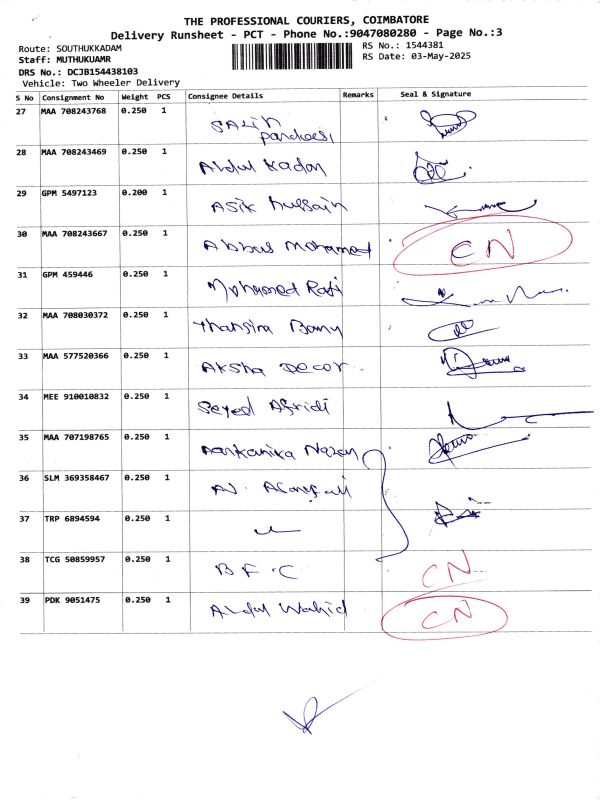 THE PROFESSIONAL COURIERS, COIMBATORE
Delivery Runsheet - PCT - Phone No.:9047080280 - Page No.:3
Route: SOUTHUKKADAM RS No.: 1544381
Staff: MUTHUKUAMR RS Date: 03-May-2025
DRS No.: DCJB154438103
Vehicle: Two Wheeler Delivery
S No Consignment No Weight PCS Consignee Details Remarks Seal & Signature
27 MAA 708243768 0.250 1 SALIH
28 MAA 708243469 0.250 1 Abdul Kadar
29 GPM 5497123 0.200 1 ASIK Hussain
30 MAA 708243667 0.250 1 Abbas Mohamed CN
31 GPM 459446 0.250 1 Mohamed Rafi
32 MAA 708030372 0.250 1 Thahsira Banu
33 MAA 577520366 0.250 1 AKSHA DECOR
34 MEE 910010832 0.250 1 Seyed Afridi
35 MAA 707198765 0.250 1
36 SLM 369358467 0.250 1
37 TRP 6894594 0.250 1
38 TCG 50859957 0.250 1 B F C CN
39 PDK 9051475 0.250 1 Abdul Wahid CN